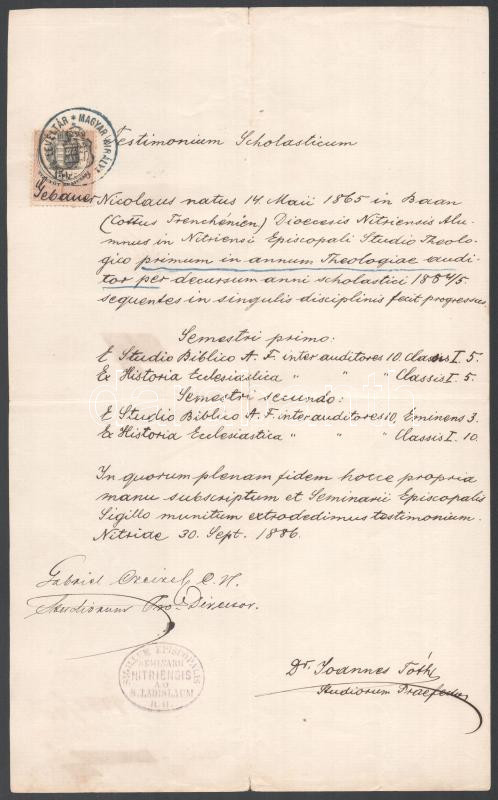 LEVÉLTÁR * MAGYAR KIRÁLYI
Testimonium Scholasticum
Gebauer Nicolaus natus 14. Maii 1865 in Baan
(Cottus Trenchénien) Dioecesis Nitriensis Alu-
mnus in Nitriensi Episcopali Studio Theolo-
gico primum in annum Theologiae audi-
tor per decursum anni scholastici 1884/5
sequentes in singulis disciplinis fecit progressus
Semestri primo:
E Studio Biblico A. F. inter auditores 10. Classis I. 5.
Ex Historia Ecclesiastica " " " Classis I. 5.
Semestri secundo:
E Studio Biblico A. F. inter auditores 10, Eminens 3.
Ex Historia Ecclesiastica " " " Classis I. 10.
In quorum plenam fidem hocce propria
manu subscriptum et Seminarii Episcopalis
Sigillo munitum extrodedimus testimonium.
Nitriae 30. Sept. 1886.
Gabriel
Studiorum Pro-Director.
SIGILLUM EPISCOPALIS
SEMINARII
NITRIENSIS
AD
S. LADISLAUM
R. H.
Dr. Joannes Tóth
Studiorum Praefectus